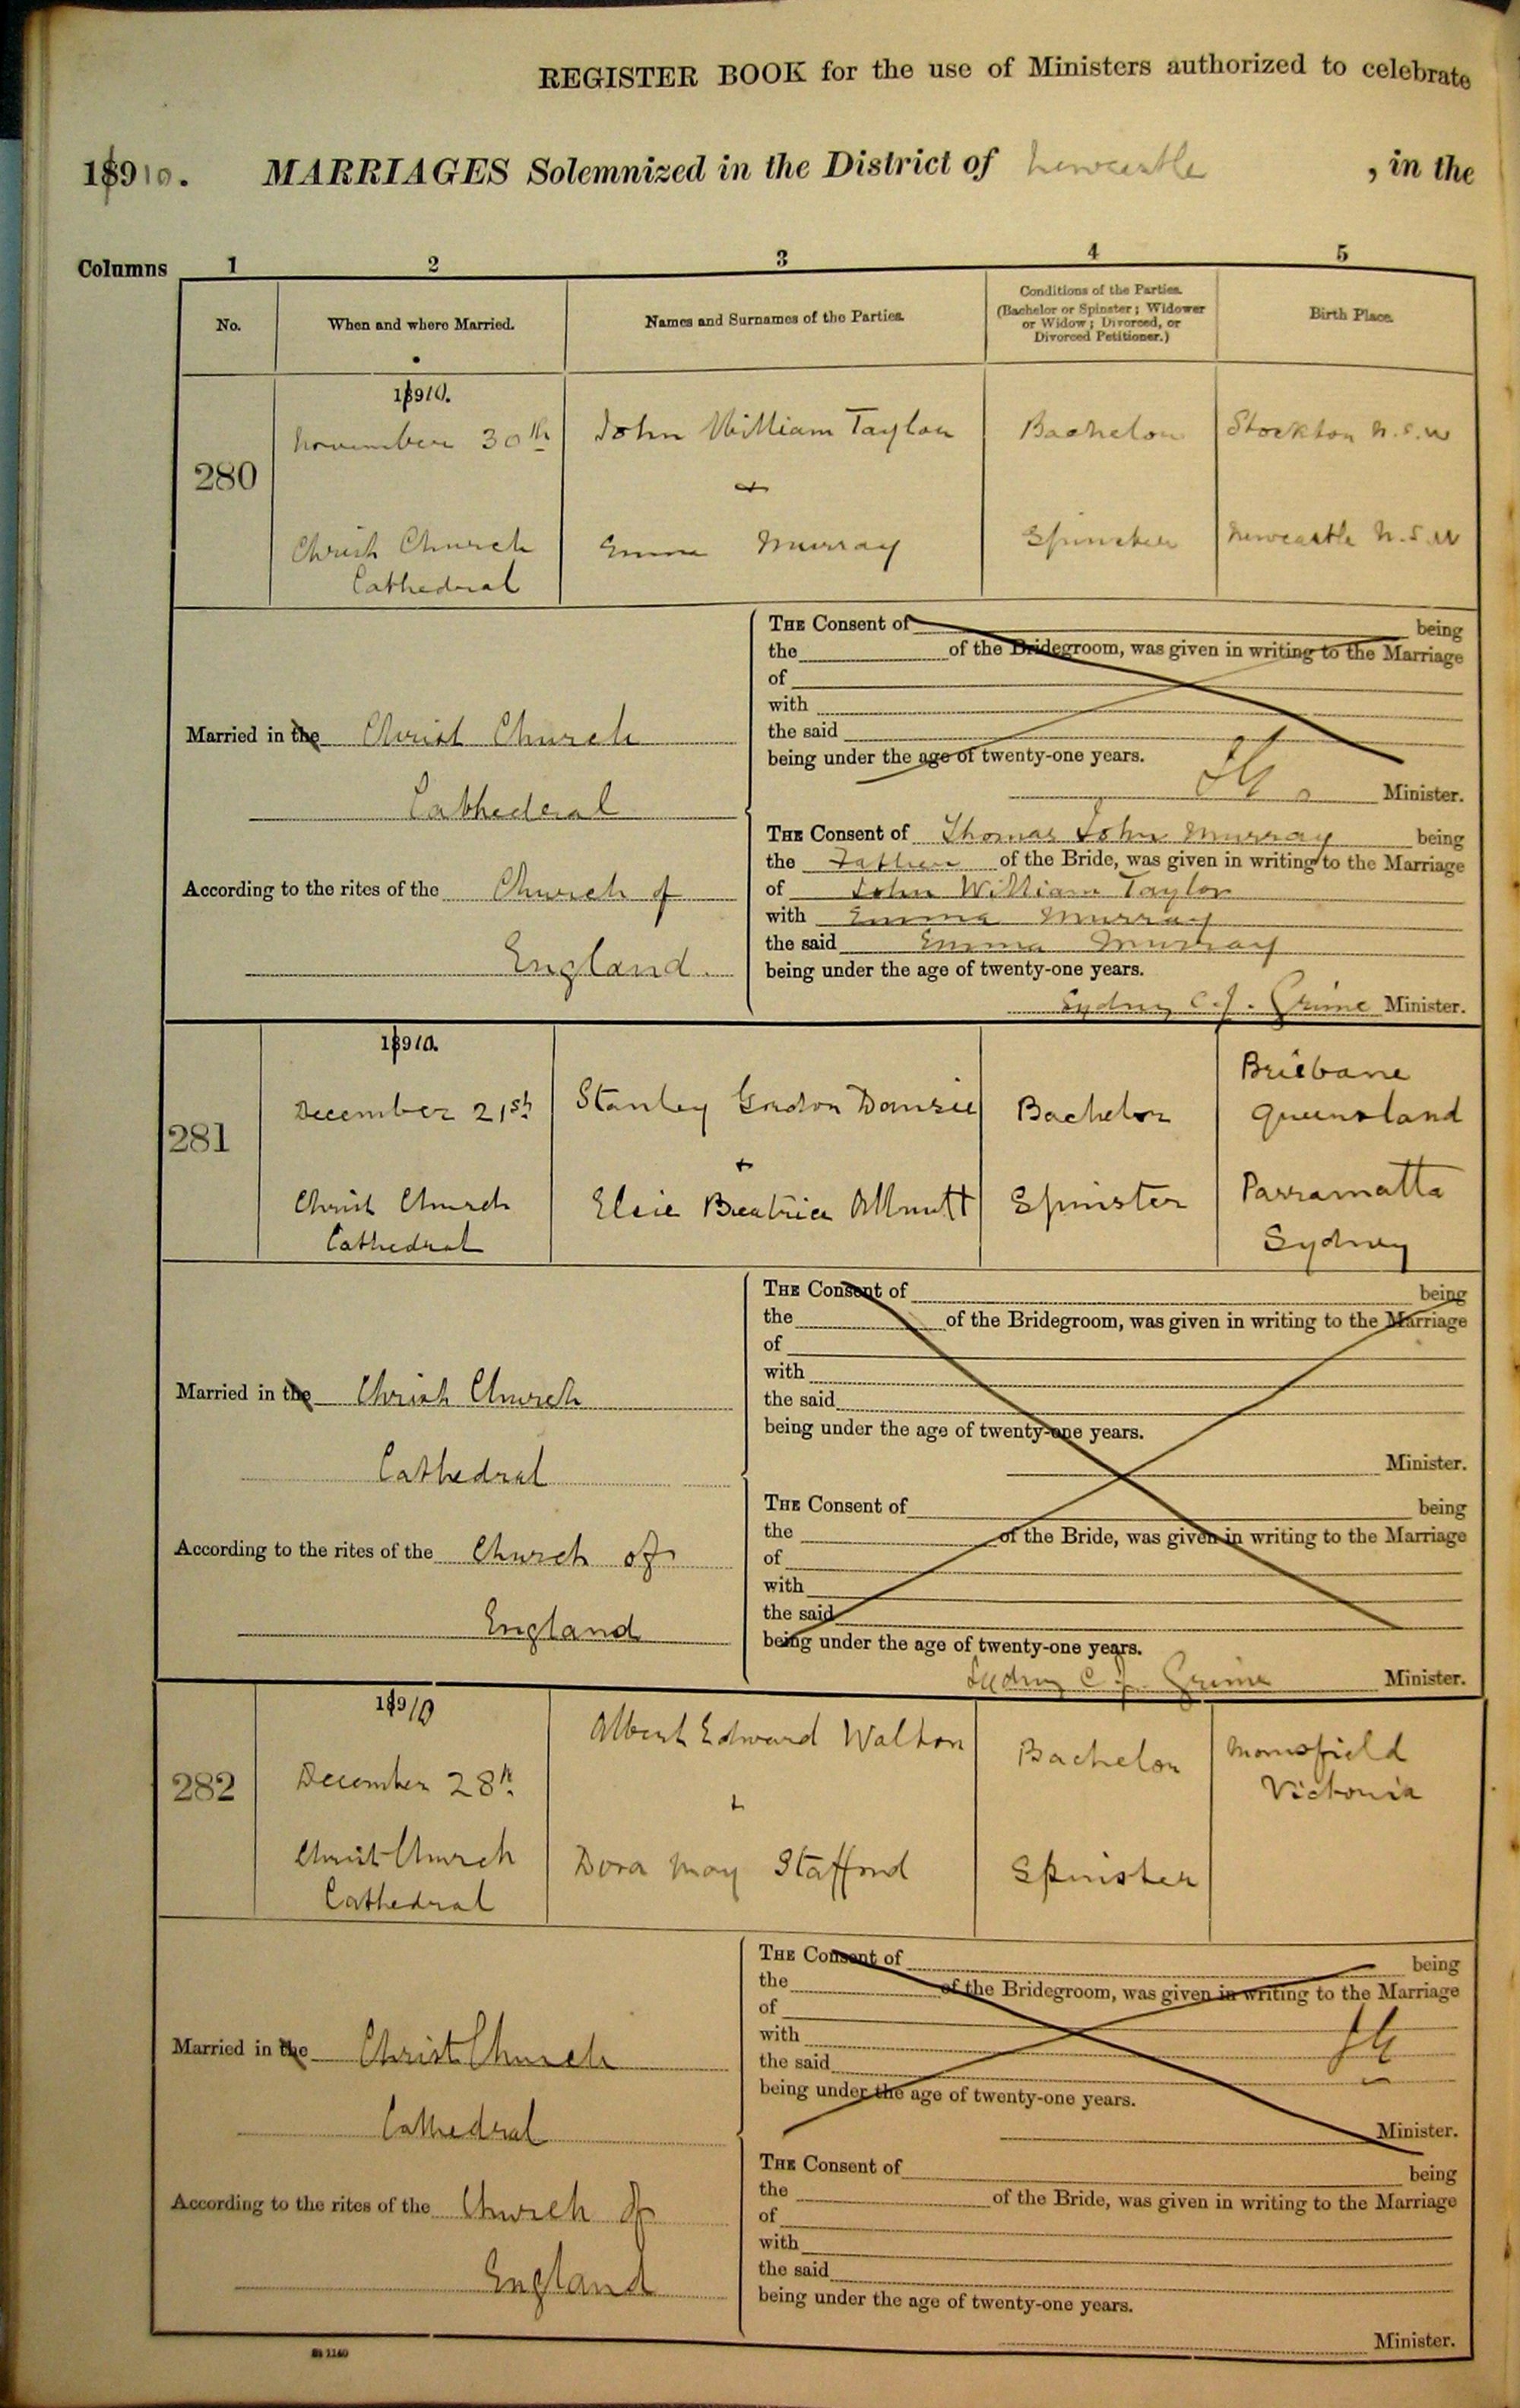 REGISTER BOOK for the use of Ministers authorized to celebrate
1910. MARRIAGES Solemnized in the District of Newcastle, in the
Columns 1 2 3 4 5
No. When and where Married. Names and Surnames of the Parties. Conditions of the Parties. (Bachelor or Spinster; Widower or Widow; Divorced, or Divorced Petitioner.) Birth Place.
1910.
280
November 30th
John William Taylor
Bachelor
Stockton N.S.W
+
Christ Church
Cathedral
Emma Murray
Spinster
Newcastle N.S.W
Married in the Christ Church
Cathederal
According to the rites of the Church of
England.
THE Consent of being
the of the Bridegroom, was given in writing to the Marriage
of
with
the said
being under the age of twenty-one years.
SG. Minister.
THE Consent of Thomas John Murray being
the Father of the Bride, was given in writing to the Marriage
of John William Taylor
with Emma Murray
the said Emma Murray
being under the age of twenty-one years.
Sydney C.J. Grime Minister.
1910.
281
December 21st
Stanley Gordon
Bachelor
Brisbane
Queensland
+
Christ Church
Cathedral
Elsie Beatrice Allnutt
Spinster
Parramatta
Sydney
Married in the Christ Church
Cathedral
According to the rites of the Church of
England
THE Consent of being
the of the Bridegroom, was given in writing to the Marriage
of
with
the said
being under the age of twenty-one years.
Minister.
THE Consent of being
the of the Bride, was given in writing to the Marriage
of
with
the said
being under the age of twenty-one years.
Sydney C.J. Grime Minister.
1910
282
December 28th
Albert Edward Walton
Bachelor
Mansfield
Victoria
+
Christ Church
Cathedral
Dora May Stafford
Spinster
Married in the Christ Church
Cathedral
According to the rites of the Church of
England
THE Consent of being
the of the Bridegroom, was given in writing to the Marriage
of
with
the said
SG
being under the age of twenty-one years.
Minister.
THE Consent of being
the of the Bride, was given in writing to the Marriage
of
with
the said
being under the age of twenty-one years.
Minister.